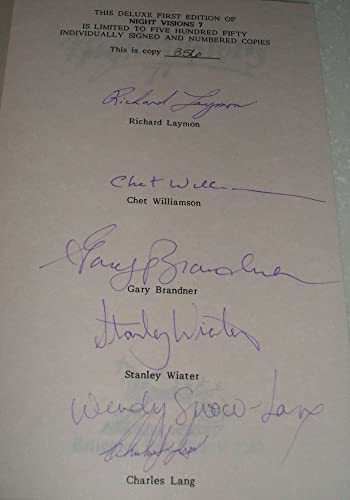 THIS DELUXE FIRST EDITION OF
NIGHT VISIONS 7
IS LIMITED TO FIVE HUNDRED FIFTY
INDIVIDUALLY SIGNED AND NUMBERED COPIES
This is copy 356
Richard Laymon
Richard Laymon
Chet Will
Chet Williamson
Gary Brandner
Gary Brandner
Stanley Wiater
Stanley Wiater
Wendy Snow-Lang
Charles Lang